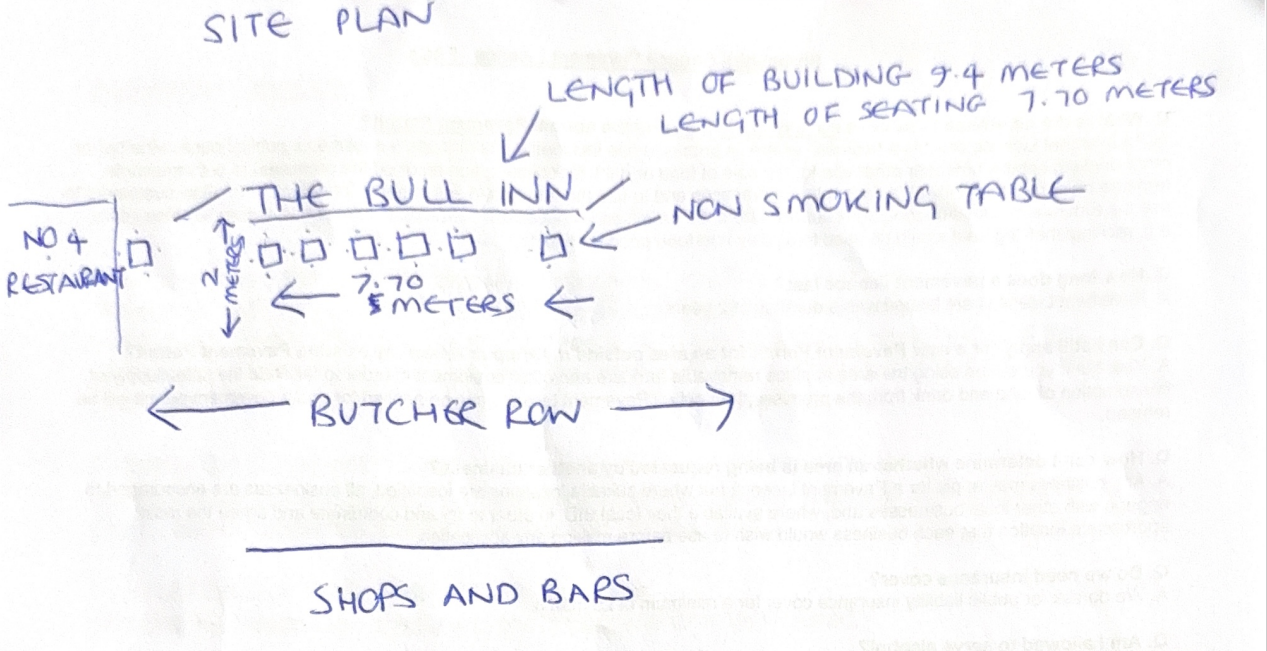 SITE PLAN
LENGTH OF BUILDING 9.4 METERS
LENGTH OF SEATING 7.70 METERS
THE BULL INN
NON SMOKING TABLE
NO 4
RESTAURANT
2 METERS
7.70
METERS
BUTCHER ROW
SHOPS AND BARS